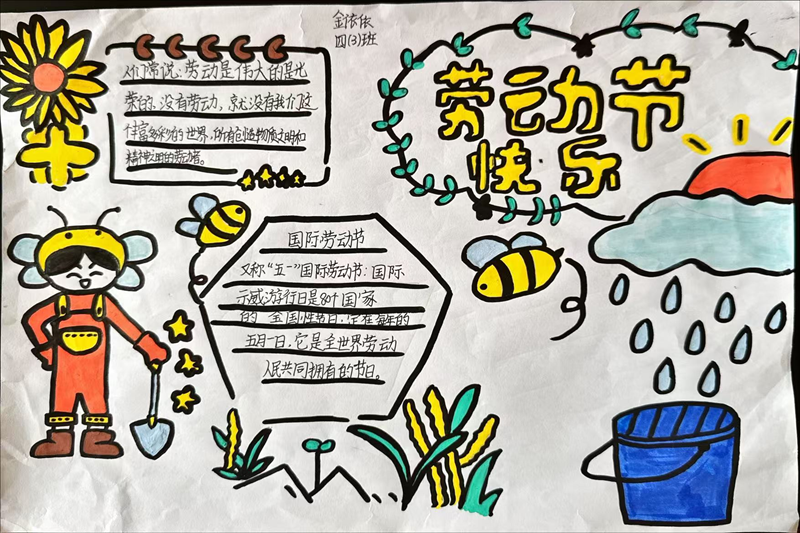 金依依
四(3)班
劳动节
快乐
人们常说:劳动是伟大的是光
荣的。没有劳动,就没有我们这
丰富多彩的世界,所有创造物质文明和
精神文明的劳动者。
国际劳动节
又称“五一”国际劳动节:国际
示威游行日是80个国家
的 全国性节日,它在每年的
五月一日,它是全世界劳动
人民共同拥有的节日。